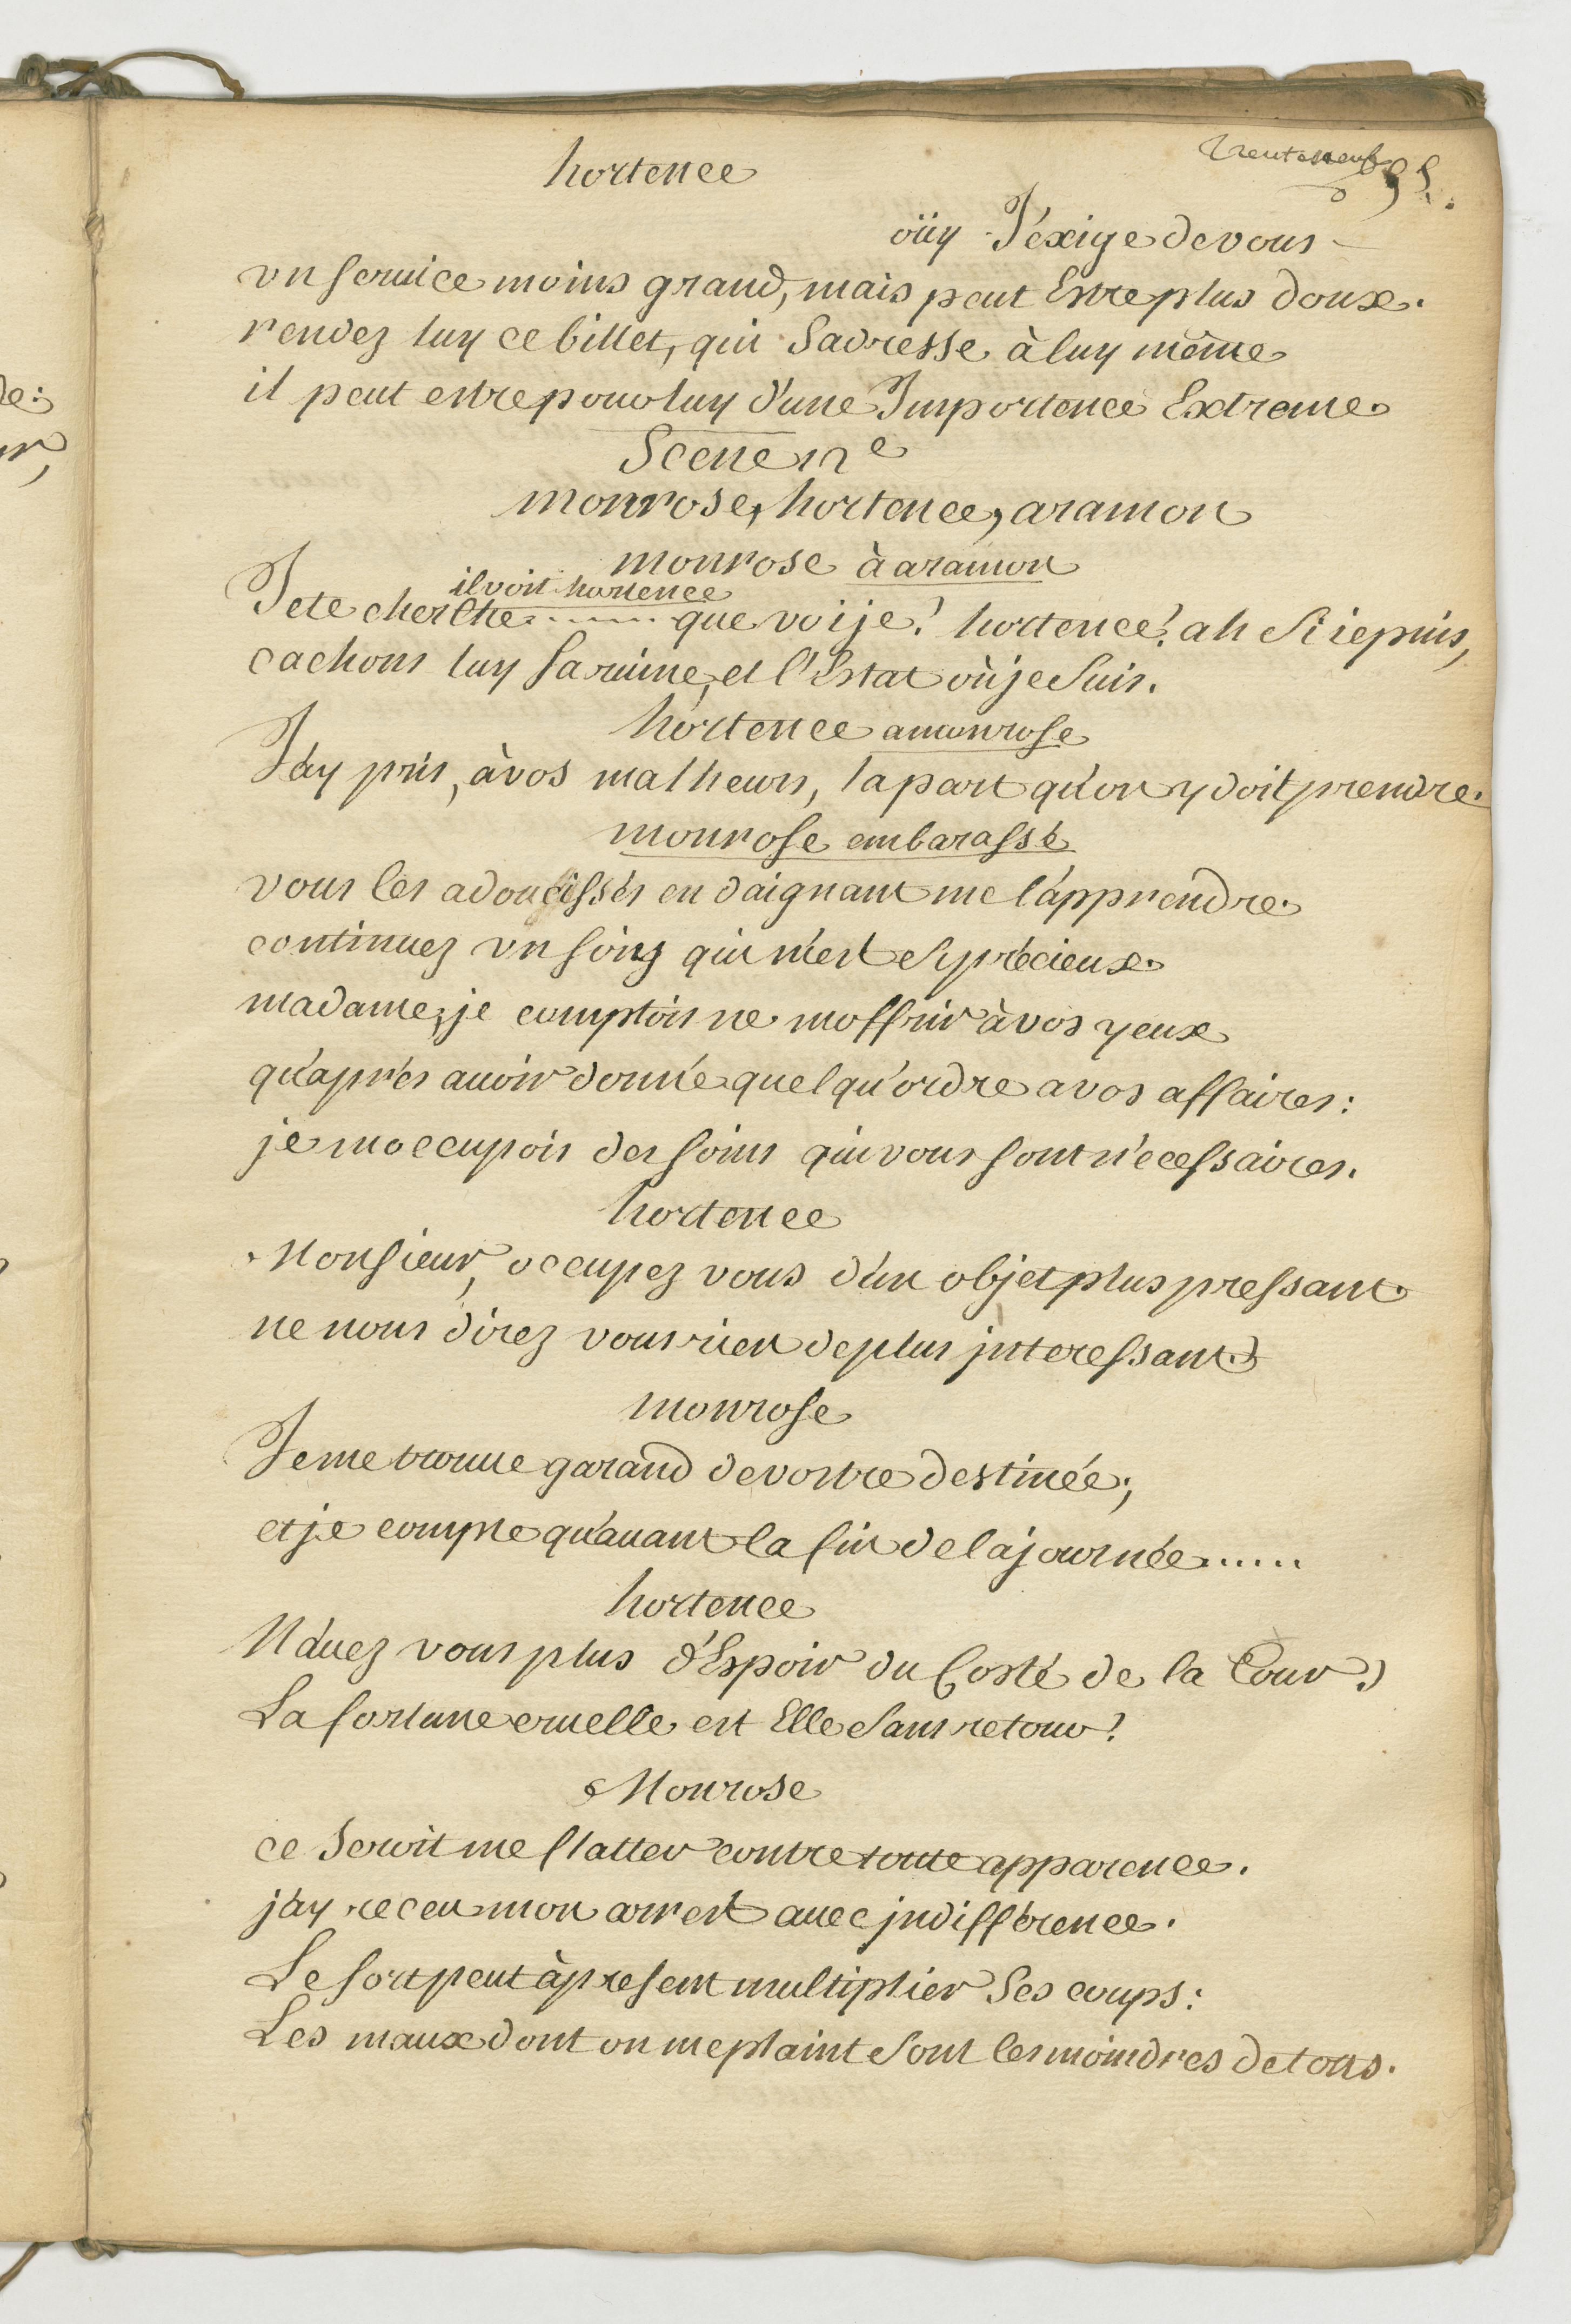 hortence
trenteneuf 39.
oüy J'éxige de vous
vn seruice moins grand, mais peut Estre plus doux.
rendez luy ce billet, qui Sadresse à luy même
il peut estre pour luy d'une Importence Extreme.
Scene 12e
monrose, hortence, aramon
monrose à aramon
il voit hortence
Je te cherche....... que voije? hortence? ah Si je puis,
cachons luy sa ruine, et l'Estat où je Suis.
hortence a monrose
J'ay pris, à vos malheurs, la part qu'on y doit prendre.
monrose embarassé
vous les adoucissés en daignant me l'apprendre.
continuez vn soing qui m'est Sy précieux.
madame, je comptois ne m'offrir à vos yeux
qu'aprés auoir donné quelqu'ordre a vos affaires:
je moccupois des soins qui vous sont nécessaires.
hortence
Monsieur, occupez vous d'un objet plus pressant.
ne nous direz vous rien de plus jnteressant?
monrose
Je me trouue garand de vostre destinée;
et je compte qu'auant la fin de la journée......
hortence
N'auez vous plus d'Espoir du Costé de la Cour?
La fortune cruelle est Elle Sans retour?
Monrose
ce Seroit me flatter contre toute apparence.
j'ay receu mon arrest auec jndifférence.
Le sort peut à present multiplier Ses coups:
Les maux dont on me plaint Sont les moindres de tous.
de: